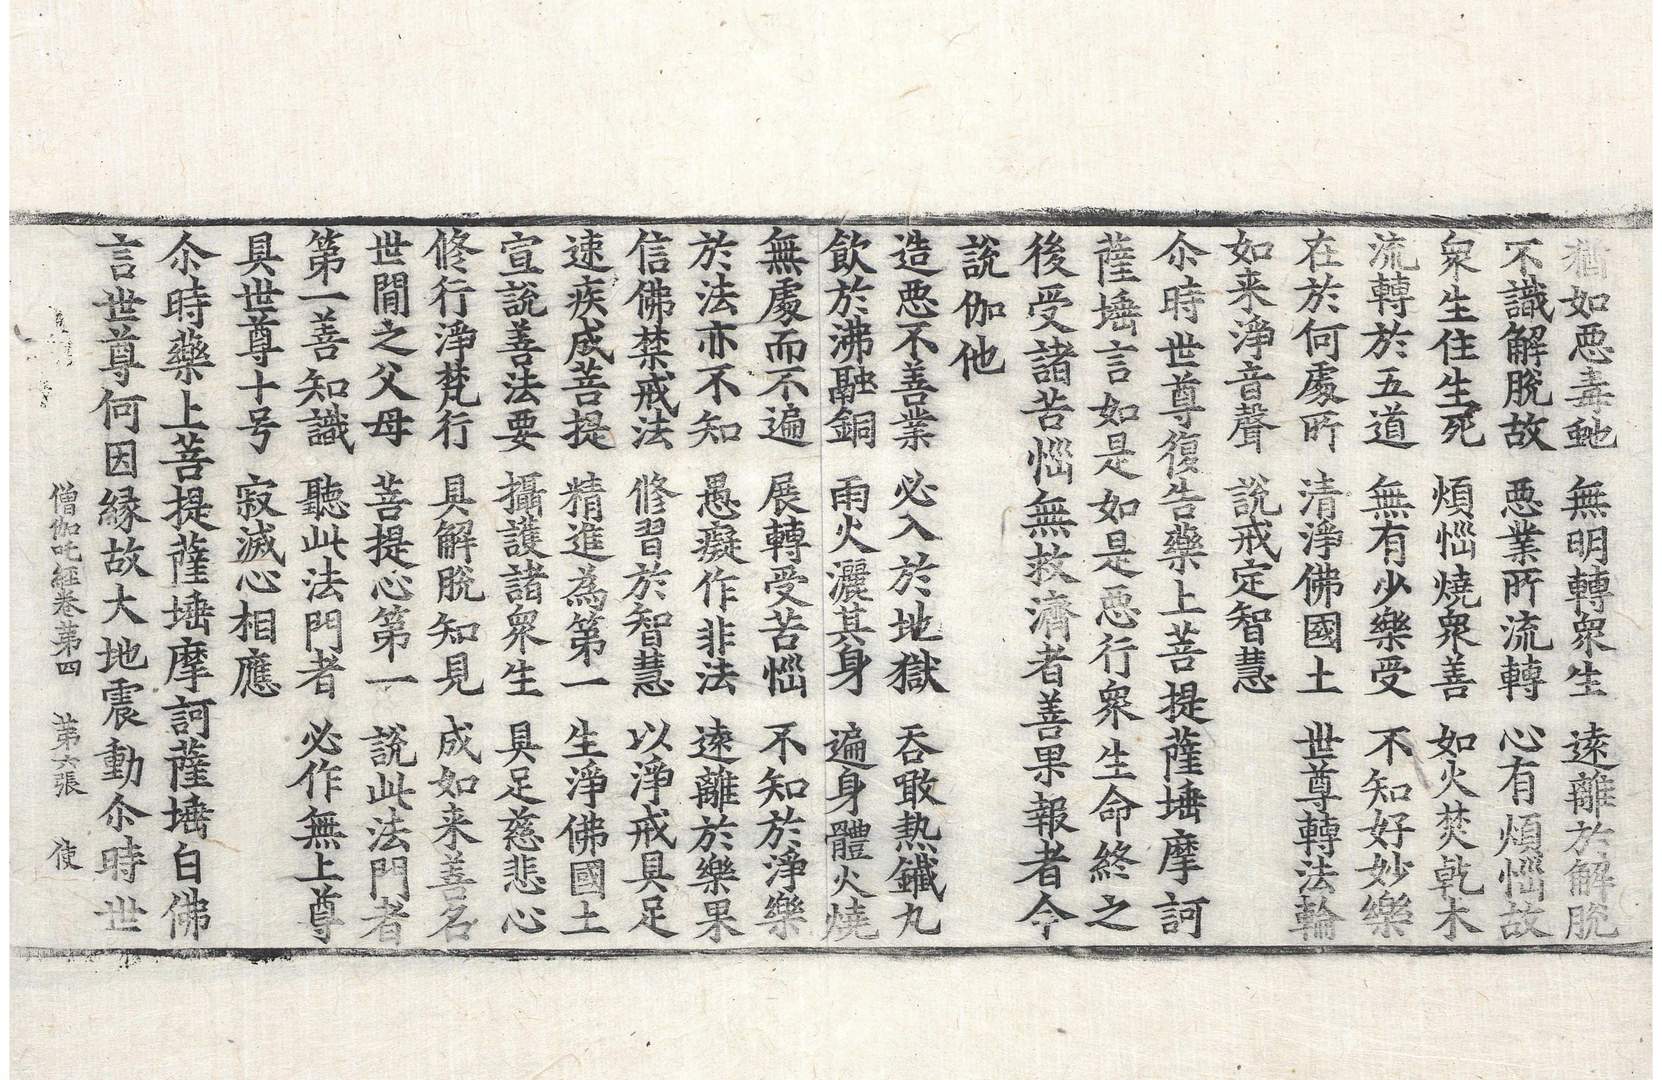 猶如惡毒虵 無明轉衆生 遠離於解脫
不識解脫故 惡業所流轉 心有煩惱故
衆生住生死 煩惱燒衆善 如火焚乾木
流轉於五道 無有少樂受 不知好妙樂
在於何處所 清淨佛國土 世尊轉法輪
如来淨音聲 說戒定智慧
尒時世尊復告藥上菩提薩埵摩訶
薩埵言如是如是惡行衆生命終之
後受諸苦惱無救濟者善果報者今
說伽他
造惡不善業 必入於地獄 吞噉熱鐵丸
飲於沸融銅 雨火灑其身 遍身體火燒
無處而不遍 展轉受苦惱 不知於淨樂
於法亦不知 愚癡作非法 遠離於樂果
信佛禁戒法 修習於智慧 以淨戒具足
速疾成菩提 精進為第一 生淨佛國土
宣說善法要 攝護諸衆生 具足慈悲心
修行淨梵行 具解脫知見 成如来善名
世間之父母 菩提心第一 說此法門者
第一善知識 聽此法門者 必作無上尊
具世尊十号 寂滅心相應
尒時藥上菩提薩埵摩訶薩埵白佛
言世尊何因縁故大地震動尒時世
僧伽吒經卷第四 第六張 使